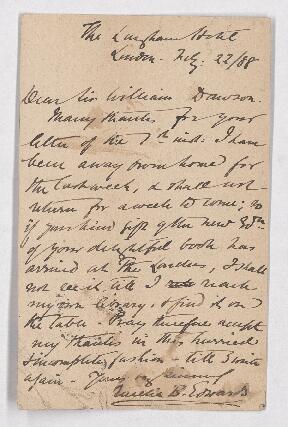 The Langham Hotel
London. Feb. 22/88
Dear Sir William Dawson.
Many thanks for your
letter of the 7th inst: I have
been away from home for
the last week, & shall not
return for a week to come; so
if your kind gift of the new Edn.
of your delightful book has
arrived at The Larches, I shall
not see it till I reach
my own library, & find it on
the table. Pray therefore accept
my thanks in this hurried
& incomplete fashion - till I write
again - Yours very sincerely
Amelia B. Edwards